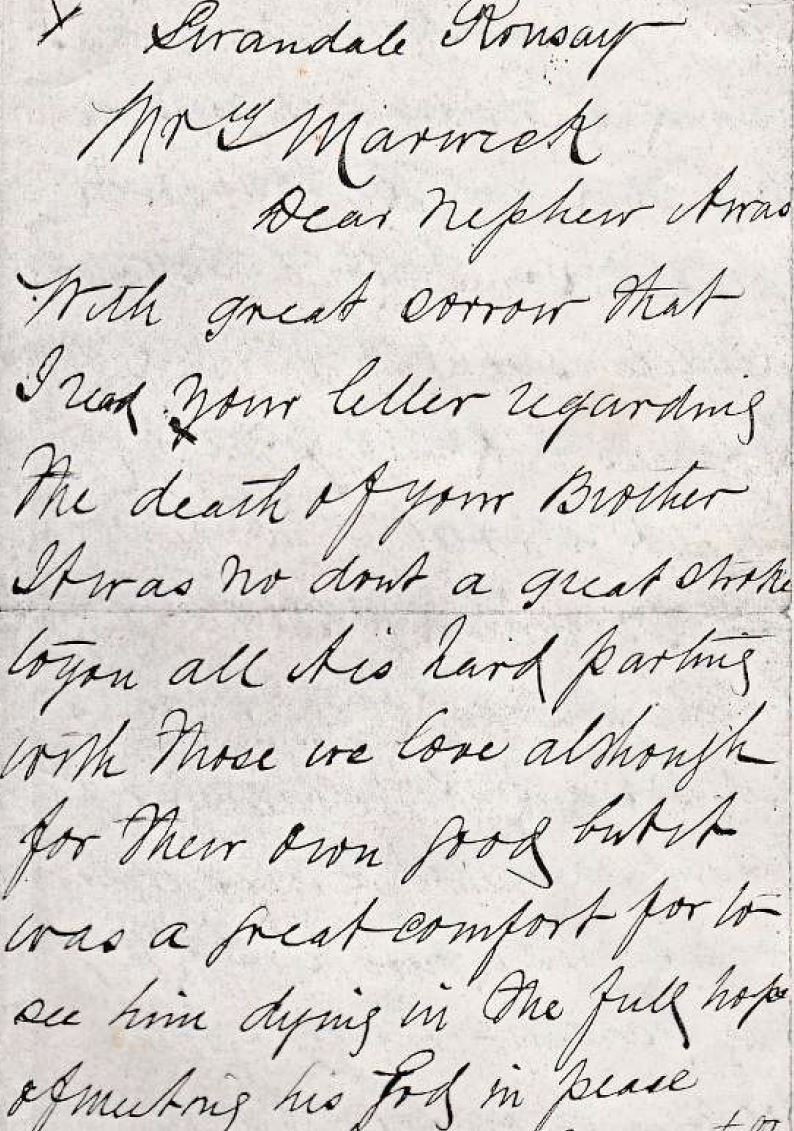 x Swandale Rousay
Mr G Marwick
Dear Nephew it was
With great sorrow that
I read your letter regarding
the death of your Brother
It was no dout a great stroke
to you all it is hard parting
with those we love although
for their own good but it
was a great comfort for to
see him dying in the full hope
of meeting his God in peace